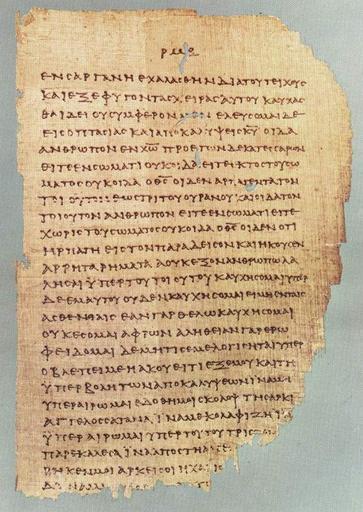 ΕΝϹΑΡΓΑΝΗΕΧΑΛΑϹΘΗΝΔΙΑΤΟΥΤΕΙΧΟΥϹ
ΚΑΙΕΞΕΦΥΓΟΝΤΑϹΧΕΙΡΑϹΑΥΤΟΥΚΑΥΧΑϹ
ΘΑΙΔΕΙΟΥϹΥΜΦΕΡΟΝΜΕΝΕΛΕΥϹΟΜΑΙΔΕ
ΕΙϹΟΠΤΑϹΙΑϹΚΑΙΑΠΟΚΑΛΥΨΕΙϹΚ̅Υ̅ΟΙΔΑ
ΑΝΘΡΩΠΟΝΕΝΧ̅Ρ̅Ω̅ΠΡΟΕΤΩΝΔΕΚΑΤΕϹϹΑΡΩΝ
ΕΙΤΕΕΝϹΩΜΑΤΙΟΥΚΟΙΔΑΕΙΤΕΕΚΤΟϹΤΟΥϹΩ
ΜΑΤΟϹΟΥΚΟΙΔΑΟΘ̅Ϲ̅ΟΙΔΕΝΑΡΠΑΓΕΝΤΑΤΟΝ
ΤΟΙΟΥΤΟΝΕΩϹΤΡΙΤΟΥΟΥΡΑΝΟΥΚΑΙΟΙΔΑΤΟΝ
ΤΟΙΟΥΤΟΝΑΝΘΡΩΠΟΝΕΙΤΕΕΝϹΩΜΑΤΙΕΙΤΕ
ΧΩΡΙϹΤΟΥϹΩΜΑΤΟϹΟΥΚΟΙΔΑΟΘ̅Ϲ̅ΟΙΔΕΝΟΤΙ
ΗΡΠΑΓΗΕΙϹΤΟΝΠΑΡΑΔΕΙϹΟΝΚΑΙΗΚΟΥϹΕΝ
ΑΡΡΗΤΑΡΗΜΑΤΑΑΟΥΚΕΞΟΝΑΝΘΡΩΠΩΛΑ
ΛΗϹΑΙΥΠΕΡΤΟΥΤΟΙΟΥΤΟΥΚΑΥΧΗϹΟΜΑΙΥΠΕΡ
ΔΕΕΜΑΥΤΟΥΟΥΔΕΝΚΑΥΧΗϹΟΜΑΙΕΙΜΗΕΝΤΑΙϹ
ΑϹΘΕΝΕΙΑΙϹΕΑΝΓΑΡΘΕΛΩΚΑΥΧΗϹΟΜΑΙ
ΟΥΚΕϹΟΜΑΙΑΦΡΩΝΑΛΗΘΕΙΑΝΓΑΡΕΡΩ
ΦΕΙΔΟΜΑΙΔΕΜΗΤΙϹΕΜΕΛΟΓΙϹΗΤΑΙΥΠΕΡ
ΟΒΛΕΠΕΙΜΕΗΑΚΟΥΕΙΤΙΕΞΕΜΟΥΚΑΙΤΗ
ΥΠΕΡΒΟΛΗΤΩΝΑΠΟΚΑΛΥΨΕΩΝΙΝΑΜΗ
ΥΠΕΡΑΙΡΩΜΑΙΕΔΟΘΗΜΟΙϹΚΟΛΟΨΤΗϹΑΡΚΙ
ΑΓΓΕΛΟϹϹΑΤΑΝΑΙΝΑΜΕΚΟΛΑΦΙΖΗΙ
ΥΠΕΡΑΙΡΩΜΑΙΥΠΕΡΤΟΥΤΟΥΤΡΙϹ
ΠΑΡΕΚΑΛΕϹΑΙΝΑΑΠΟϹΤΗ
ΡΗΚΕΝΜΟΙΑΡΚΕΙϹΟΙΗΧΑΡΙϹ